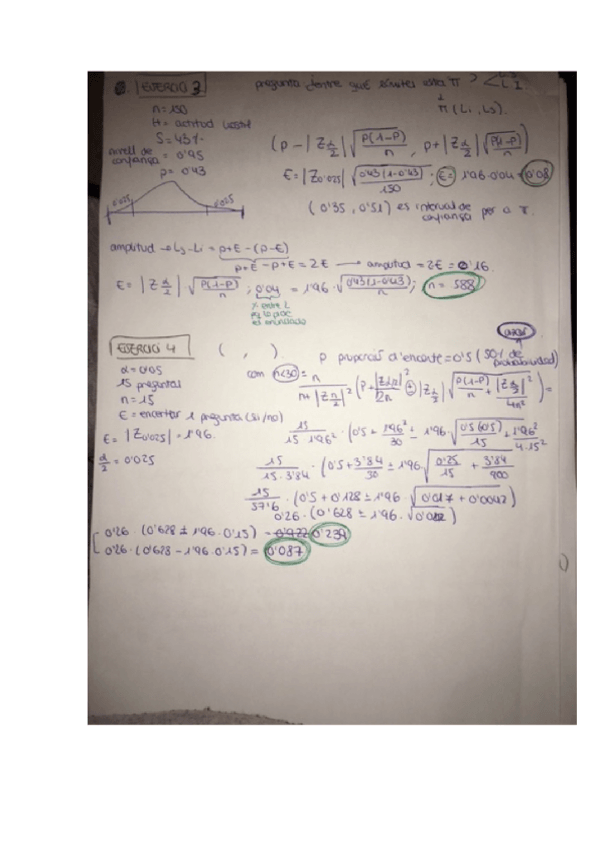 EJERCICI 3
pregunta dentre què valors està π > < Ls Li
π (Li, Ls).
n = 150
H = actitud
S = 43%
nivell de confiança = 0'95
p = 0'43
(p - |Z α/2| √(P(1-P)/n) , p + |Z α/2| √(P(1-P)/n))
ε = |Z0'025| √(0'43(1-0'43)/150) ; ε = 1'96·0'04 = 0'08
0'025 0'025
(0'35, 0'51) es interval de confiança per a π.
amplitud → Ls - Li = p+ε - (p-ε)
p+ε - p+ε = 2ε → amplitud = 2ε = 0'16
ε = |Z α/2| √(P(1-P)/n) ; 0'04 = 1'96 · √(0'43(1-0'43)/n) ; n = 588
enunciado
EJERCICI 4 ( , ).
p proporció d'encerts = 0'5 (50% de probabilidad)
α = 0'05
15 preguntas
n = 15
ε = encertar 1 pregunta (si/no)
ε = |Z0'025| = 1'96
α/2 = 0'025
com n<30 = n/(n+|Z α/2|²) · (p + |Z α/2|²/2n ± |Z α/2| √(P(1-P)/n + |Z α/2|²/4n²) =
15/(15·1'96²) · (0'5 + 1'96²/30 ± 1'96 √(0'5(0'5)/15 + 1'96²/4·15²
15/(15·3'84) · (0'5 + 3'84/30 ± 1'96 √(0'25/15 + 3'84/900
15/57'6 · (0'5 + 0'128 ± 1'96 · √(0'017 + 0'0042))
0'26 · (0'628 ± 1'96 · √0'022)
0'26 · (0'628 + 1'96 · 0'15) = 0'239
0'26 · (0'628 - 1'96 · 0'15) = 0'087